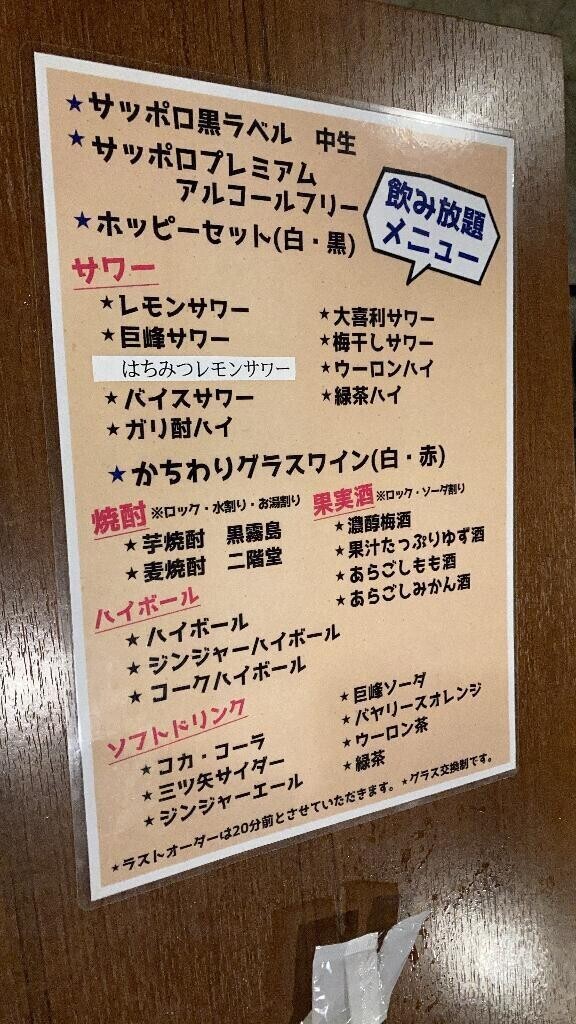 ★サッポロ黒ラベル 中生
★サッポロプレミアム
アルコールフリー
★ホッピーセット(白・黒)
飲み放題
メニュー
サワー
★レモンサワー
★巨峰サワー
はちみつレモンサワー
★バイスサワー
★ガリ酎ハイ
★大喜利サワー
★梅干しサワー
★ウーロンハイ
★緑茶ハイ
★かちわりグラスワイン(白・赤)
焼酎 ※ロック・水割り・お湯割り
★芋焼酎 黒霧島
★麦焼酎 二階堂
果実酒 ※ロック・ソーダ割り
★濃醇梅酒
★果汁たっぷりゆず酒
★あらごしもも酒
★あらごしみかん酒
ハイボール
★ハイボール
★ジンジャーハイボール
★コークハイボール
ソフトドリンク
★コカ・コーラ
★三ツ矢サイダー
★ジンジャーエール
★巨峰ソーダ
★バヤリースオレンジ
★ウーロン茶
★緑茶
★ラストオーダーは20分前とさせていただきます。★グラス交換制です。